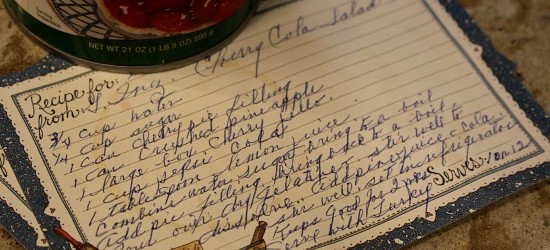 NET WT 21 OZ (1 LB 5 OZ) 595 g
Recipe for: Cherry Cola Salad
from:
3/4 cup water
3/4 cup sugar
1 can cherry pie filling
1 can crushed pineapple
1 large box cherry jello
1 cup Pepsi cola
1 tablespoon lemon juice.
Combine water, sugar bring to a boil
Add pie filling, bring back to a boil
Pour over dry gelatin, stir well to
dissolve. Add pineapple, cola
stir well, set in refrigerator
Keeps good for 2 wks
Serve with Turkey
Serves: 10 or 12